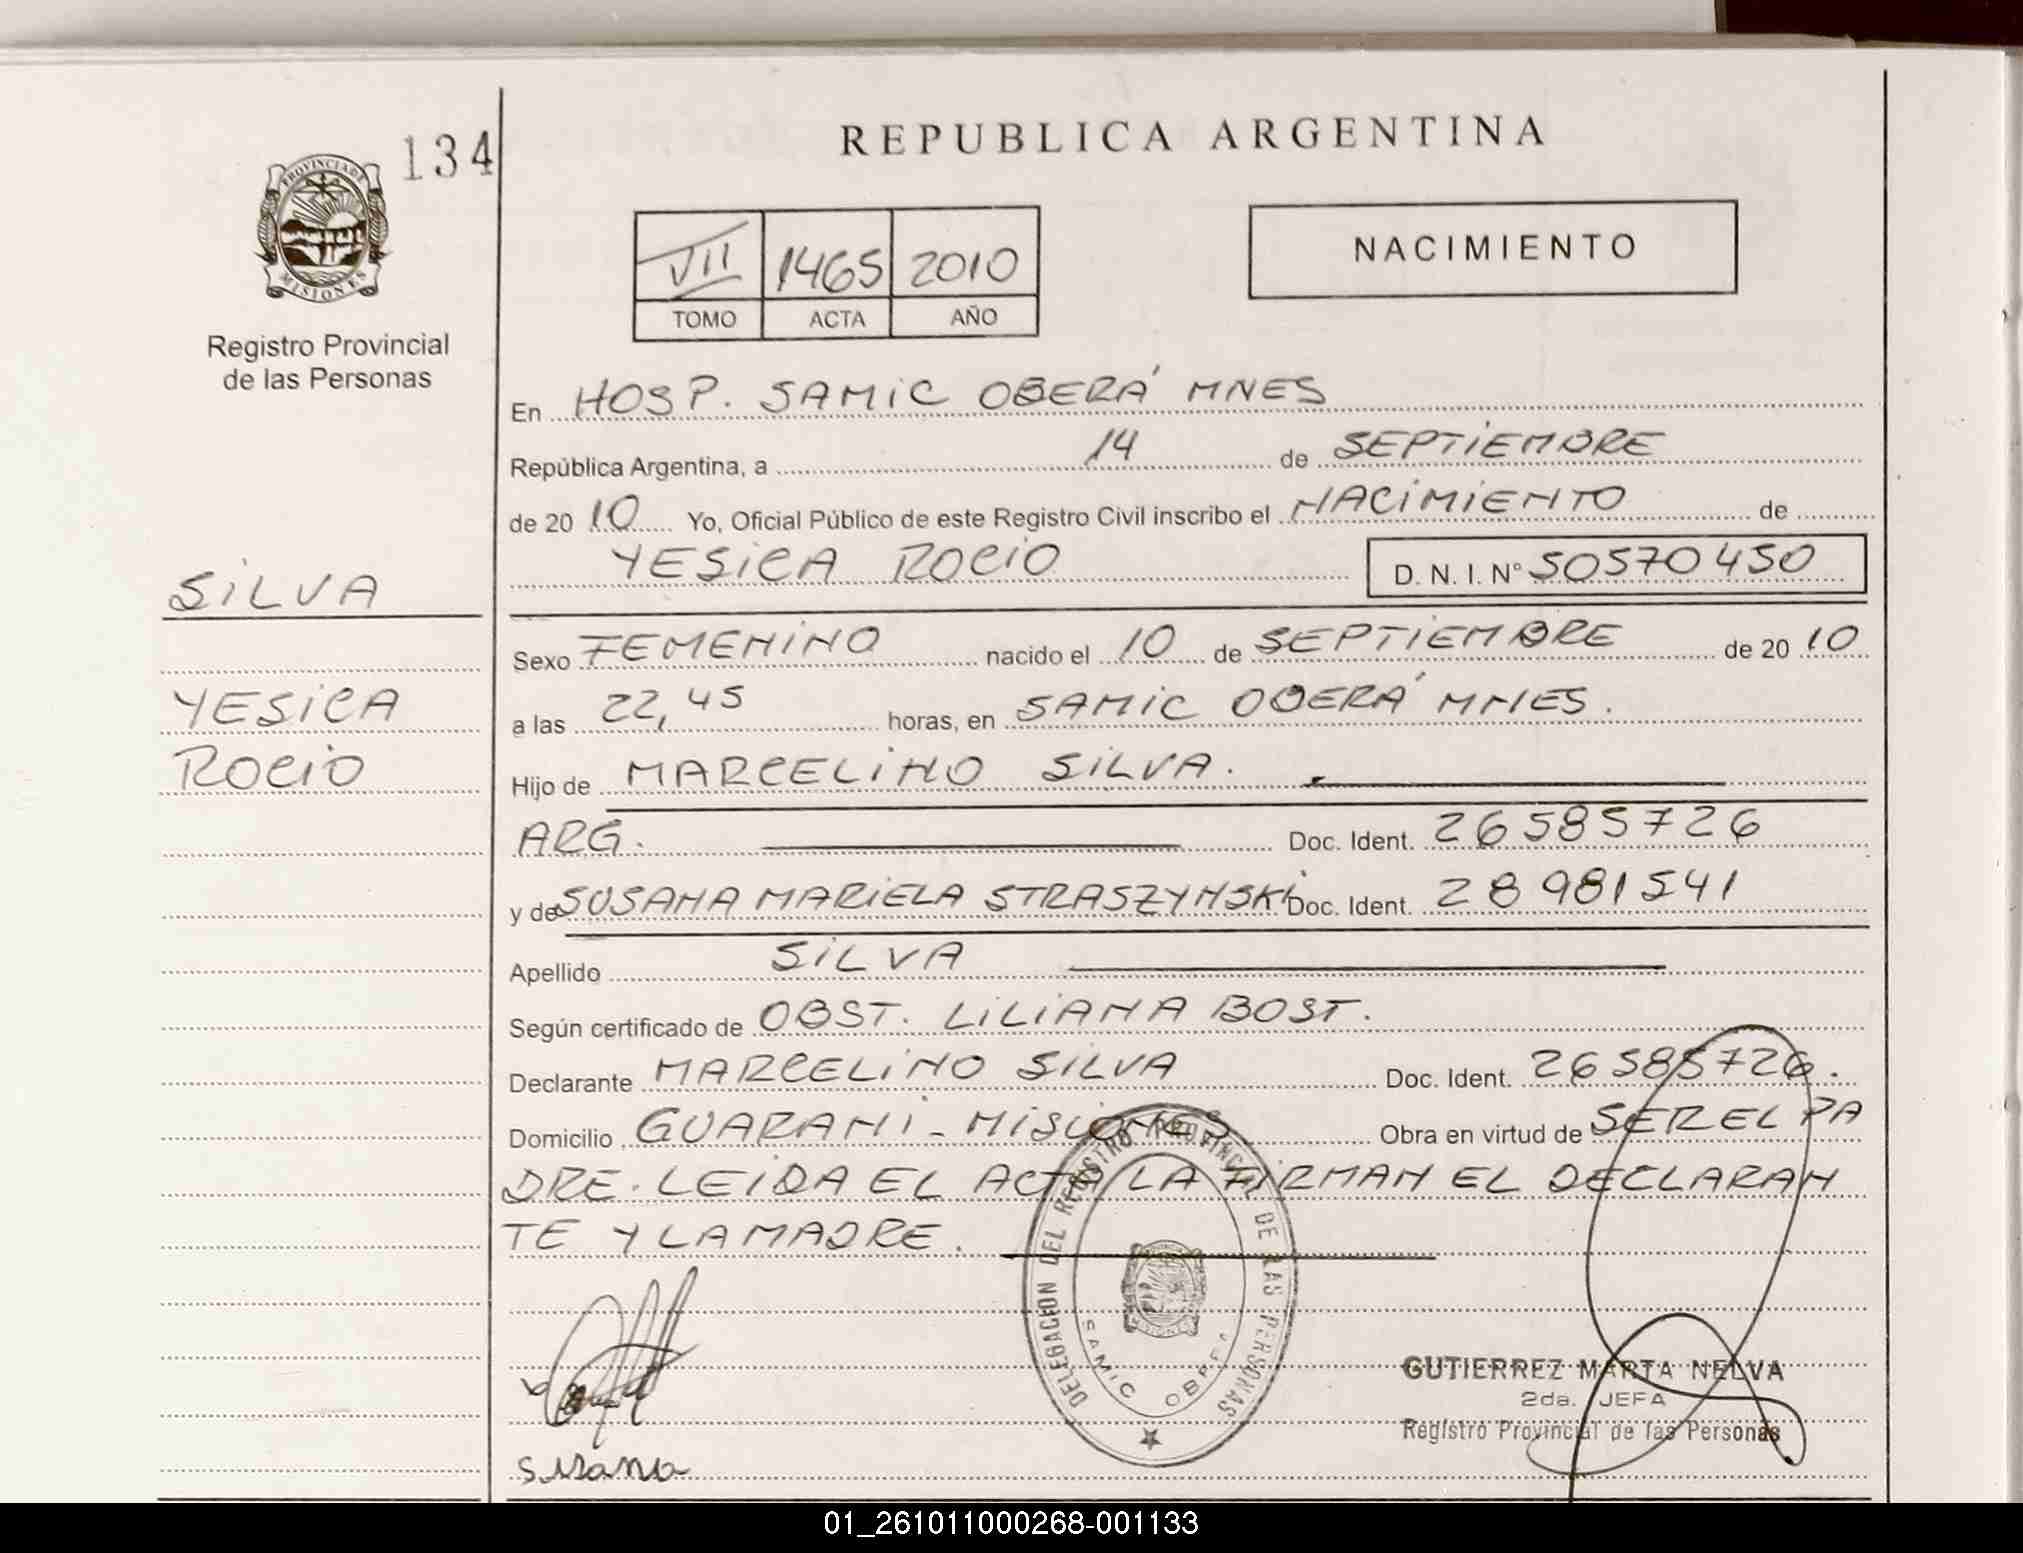 REPUBLICA ARGENTINA
134
PROVINCIA DE
MISIONES
Registro Provincial
de las Personas
VII 1465 2010
TOMO ACTA AÑO
NACIMIENTO
En HOSP. SAMIC OBERÁ MNES
República Argentina, a 14 de SEPTIEMBRE
de 2010 Yo, Oficial Público de este Registro Civil inscribo el NACIMIENTO de
YESICA ROCIO D. N. I. N° 50570450
SILVA
YESICA
ROCIO
Sexo FEMENINO nacido el 10 de SEPTIEMBRE de 2010
a las 22,45 horas, en SAMIC OBERÁ MNES.
Hijo de MARCELINO SILVA.
ARG. Doc. Ident. 26585726
y de SUSANA MARIELA STRASZYNSKI Doc. Ident. 28981541
Apellido SILVA
Según certificado de OBST. LILIANA BOST.
Declarante MARCELINO SILVA Doc. Ident. 26585726.
Domicilio GUARANI - MISIONES Obra en virtud de SER EL PA
DRE. LEIDA EL ACTA LA FIRMAN EL DECLARAN
TE Y LA MADRE.
DELEGACION DEL REGISTRO PROVINCIAL DE LAS PERSONAS
SAMIC OBERA
GUTIERREZ MARTA NELVA
2da. JEFA
Registro Provincial de las Personas
Susana
01_261011000268-001133